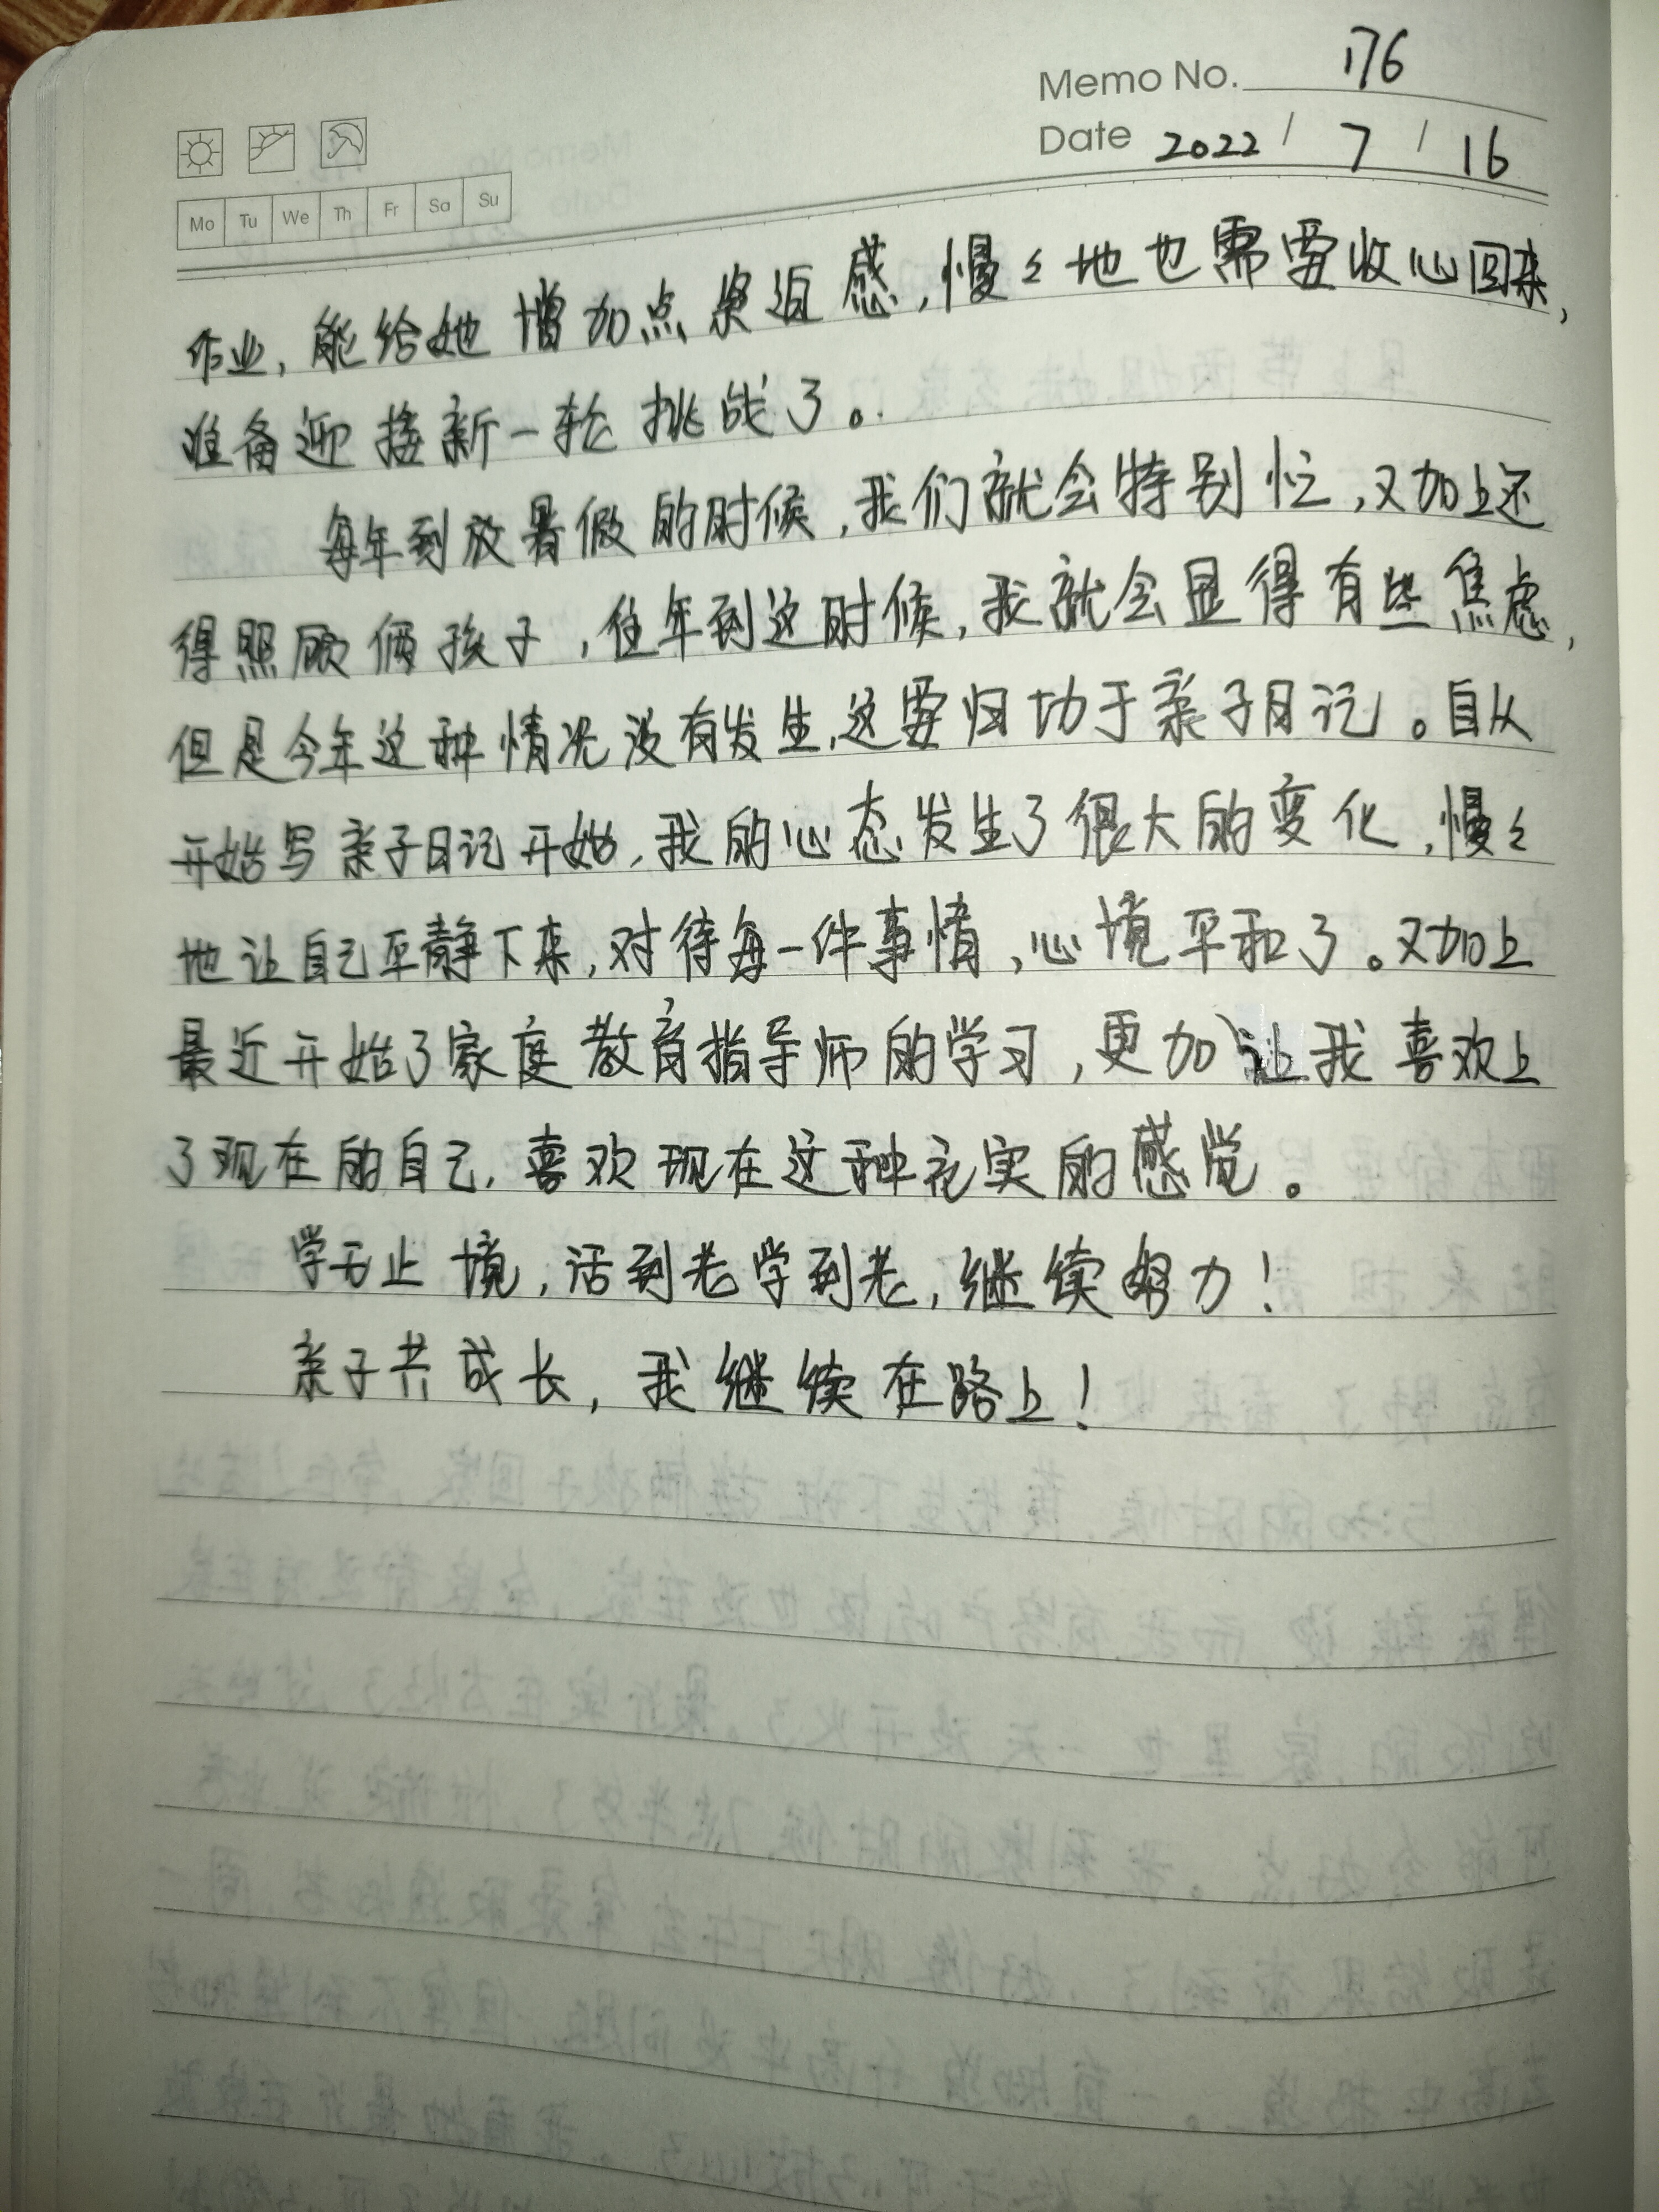 Memo No. 176
Date 2022 / 7 / 16
Mo Tu We Th Fr Sa Su
作业，能给她增加点紧迫感，慢々地也需要收心回来，
准备迎接新一轮挑战了。
每年到放暑假的时候，我们就会特别忙，又加上还
得照顾俩孩子，往年到这时候，我就会显得有些焦虑，
但是今年这种情况没有发生，这要归功于亲子日记。自从
开始写亲子日记开始，我的心态发生了很大的变化，慢々
地让自己平静下来，对待每一件事情，心境平和了。又加上
最近开始了家庭教育指导师的学习，更加让我喜欢上
了现在的自己，喜欢现在这种充实的感觉。
学无止境，活到老学到老，继续努力！
亲子共成长，我继续在路上！